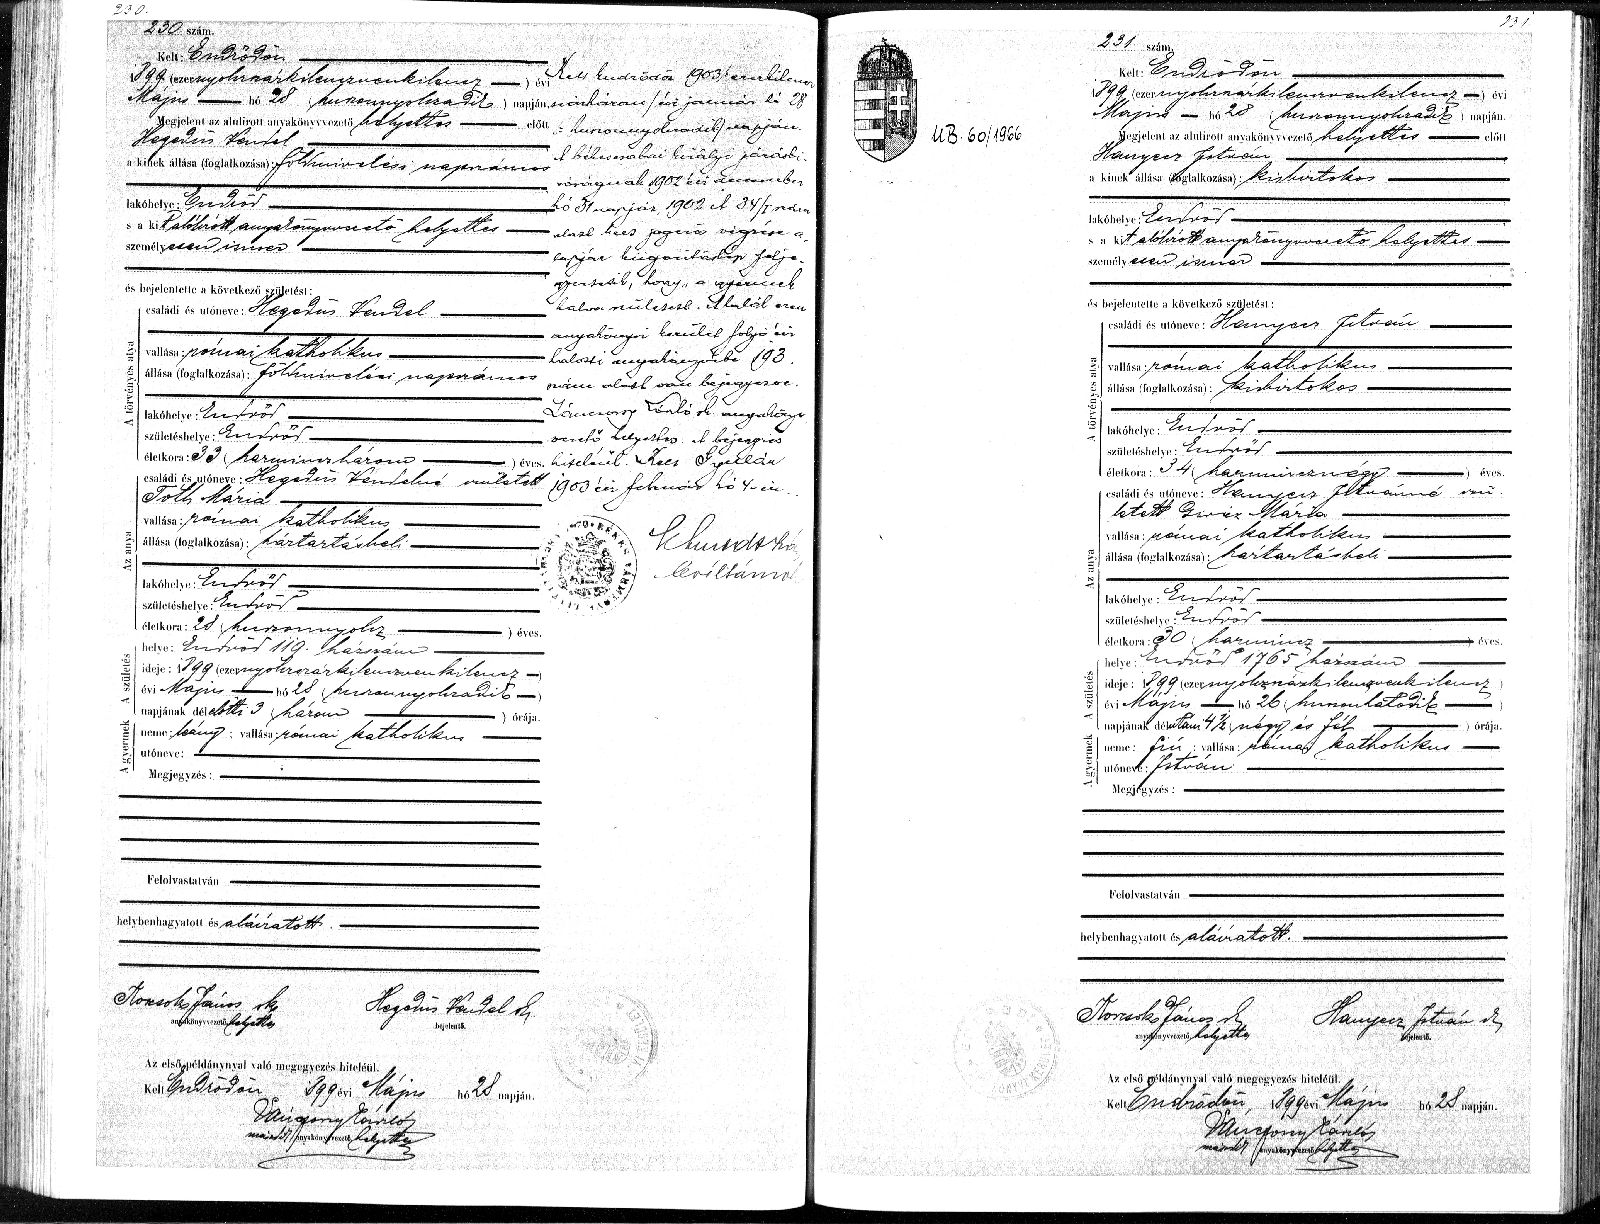 230.
230 szám.
Kelt: Endrődön
1899 (ezernyolczszázkilenczvenkilencz) évi
Május hó 28 (huszonnyolczadik) napján.
Megjelent az alulirott anyakönyvvezető helyettes előtt
Hegedüs Vendel
a kinek állása (foglalkozása): földmivelési napszámos
lakóhelye: Endrőd
s a kit alólirott anyakönyvvezető helyettes
személyesen ismer
és bejelentette a következő születést:
A törvényes atya
családi és utóneve: Hegedüs Vendel
vallása: római katholikus
állása (foglalkozása): földmivelési napszámos
lakóhelye: Endrőd
születéshelye: Endrőd
életkora: 33 (harminczhárom) éves.
Az anya
családi és utóneve: Hegedüs Vendelné született
Tóth Mária
vallása: római katholikus
állása (foglalkozása): háztartásbeli
lakóhelye: Endrőd
születéshelye: Endrőd
életkora: 28 (huszonnyolcz) éves.
A születés
helye: Endrőd 119. házszám
ideje: 1899 (ezernyolczszázkilenczvenkilencz)
évi Május hó 28 (huszonnyolczadik)
napjának délelőtti 3 (három) órája.
A gyermek
neme: leány; vallása: római katholikus
utóneve:
Megjegyzés:
Felolvastatván
helybenhagyatott és aláiratott.
Korcsok János sk
anyakönyvvezető helyettes
Hegedüs Vendel sk.
bejelentő.
Az első példánynyal való megegyezés hiteléül.
Kelt Endrődön, 1899 évi Május hó 28 napján.
anyakönyvvezető helyettes
Kelt Endrődön 1903 (ezerkilencz
százhárom) évi január hó 28
(huszonnyolczadik) napján.
A békéscsabai királyi járásbi-
róságnak 1902 évi deczember
hó 31 napján 1902 A 34/7 szám
alatt kelt jogerős végzése a-
lapján kiigazitásképp felje-
gyeztetik, hogy a gyermek
halva született. A halál ezen
anyakönyvi kerület folyó évi
halotti anyakönyvébe 193.
szám alatt van bejegyezve.
helyettes. A bejegyzés
hiteléül. Kelt Gyulán
1903 évi február hó 4-én.
231
231 szám.
Kelt: Endrődön
1899 (ezernyolczszázkilenczvenkilencz) évi
Május hó 28 (huszonnyolczadik) napján.
Megjelent az alulirott anyakönyvvezető helyettes előtt
Hanyecz István
a kinek állása (foglalkozása): kisbirtokos
lakóhelye: Endrőd
s a kit alólirott anyakönyvvezető helyettes
személyesen ismer
és bejelentette a következő születést:
A törvényes atya
családi és utóneve: Hanyecz István
vallása: római katholikus
állása (foglalkozása): kisbirtokos
lakóhelye: Endrőd
születéshelye: Endrőd
életkora: 34 (harmincznégy) éves.
Az anya
családi és utóneve: Hanyecz Istvánné szü-
letett Mária
vallása: római katholikus
állása (foglalkozása): háztartásbeli
lakóhelye: Endrőd
születéshelye: Endrőd
életkora: 30 (harmincz) éves.
A születés
helye: Endrőd 1765 házszám
ideje: 1899 (ezernyolczszázkilenczvenkilencz)
évi Május hó 26 (huszonhatodik)
napjának délutáni 4 1/2 (négy és fél) órája.
A gyermek
neme: fiú; vallása: római katholikus
utóneve: István
Megjegyzés:
Felolvastatván
helybenhagyatott és aláiratott.
Korcsok János sk
anyakönyvvezető helyettes
Hanyecz István sk
bejelentő.
Az első példánynyal való megegyezés hiteléül.
Kelt Endrődön, 1899 évi Május hó 28 napján.
anyakönyvvezető helyettes
UB. 60/1966